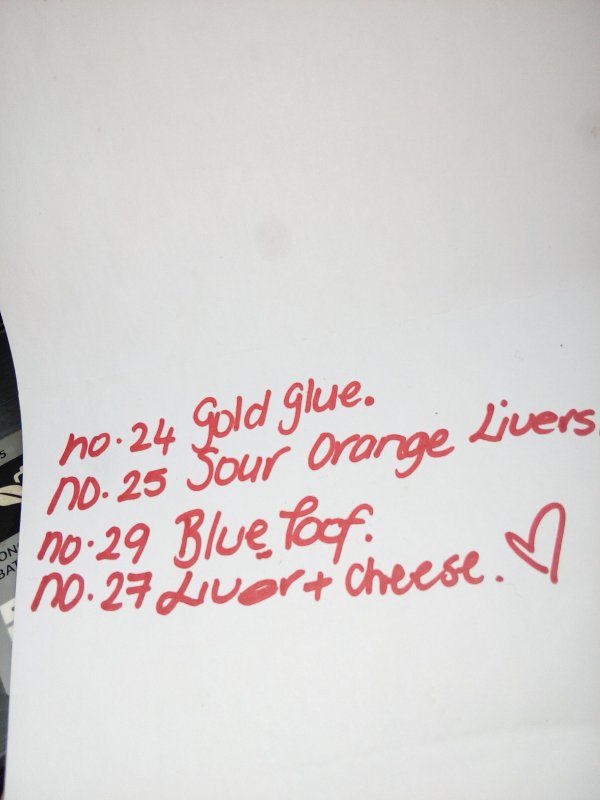 no.24 Gold glue.
no.25 Sour Orange Livers.
no.29 Blue loaf.
no.27 Liver + cheese.